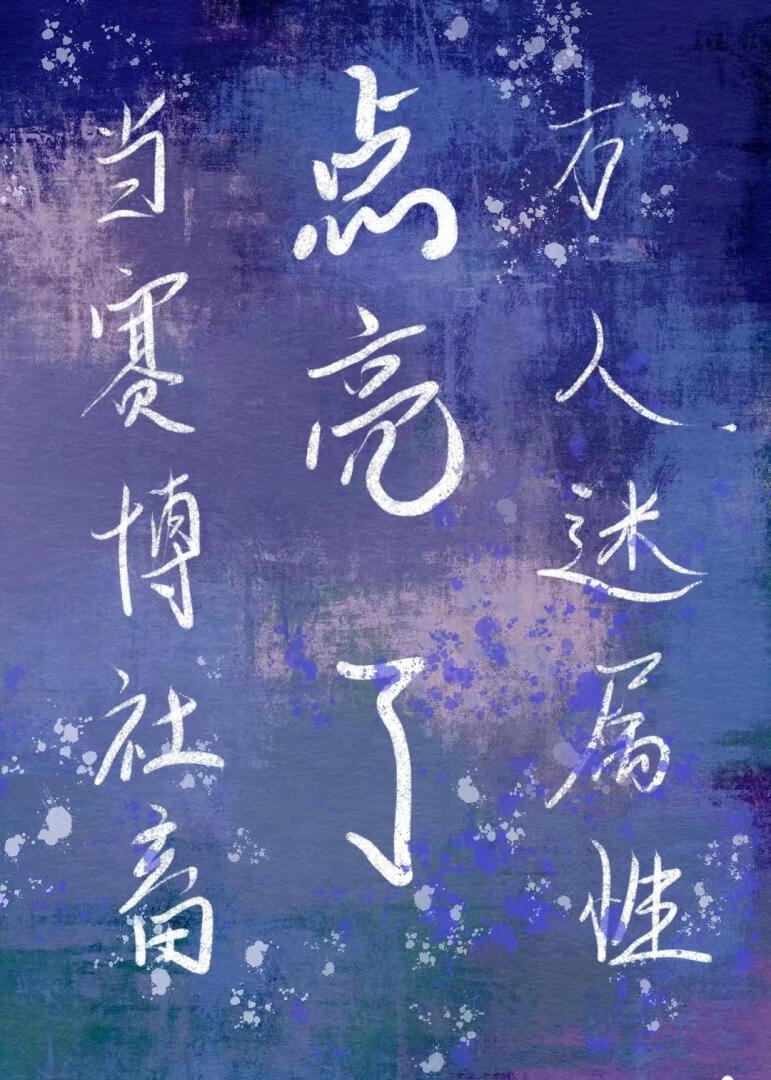 当赛博社畜
点亮了
万人迷属性